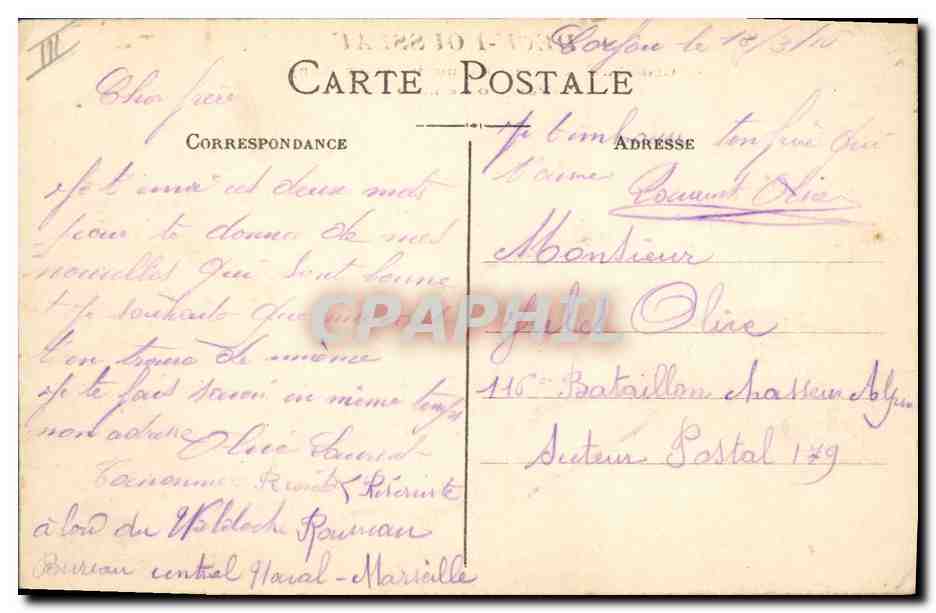 III
Corfou le 18/3/16
CARTE POSTALE
Cher frère
CORRESPONDANCE
ADRESSE
Je t'embrasse ton frère qui
t'aime
Laurent Olive
Je t'envoi ces deux mots
pour te donner de mes
nouvelles qui sont bonne
et je souhaite que
t'en trouve de même
Je te fais savoir en même temps
mon adresse Olive Laurent
Réserviste
à bord du Waldeck Rousseau
Bureau central Naval - Marseille
Monsieur
Jules Olive
116e Bataillon chasseur Alpin
Secteur Postal 179
CPAPHIL